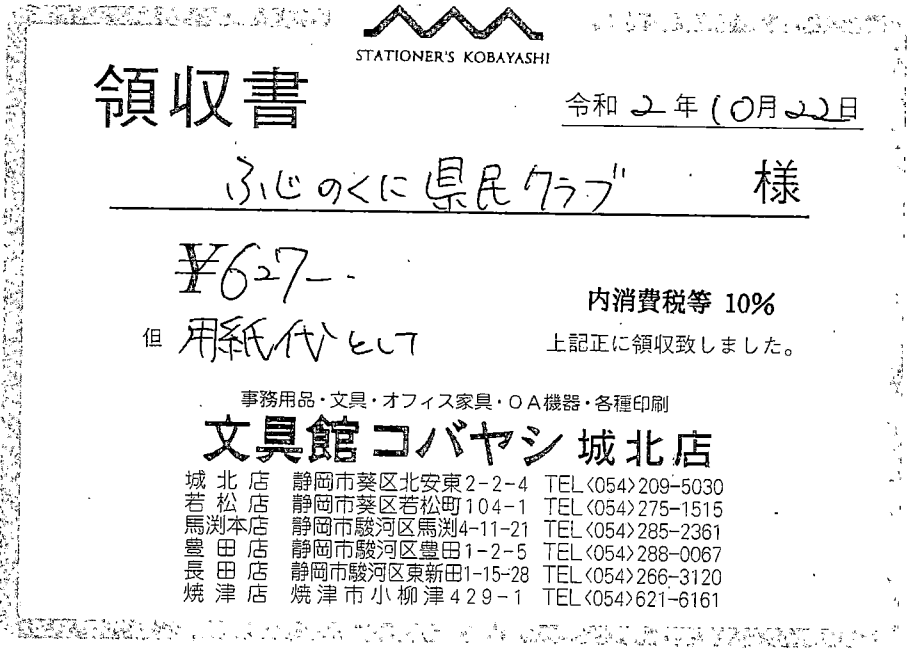 STATIONER'S KOBAYASHI
領収書
令和2年10月22日
ふじのくに県民クラブ 様
¥627-
内消費税等 10%
但 用紙代として
上記正に領収致しました。
事務用品・文具・オフィス家具・OA機器・各種印刷
文具館コバヤシ 城北店
城北店 静岡市葵区北安東2-2-4 TEL<054>209-5030
若松店 静岡市葵区若松町104-1 TEL<054>275-1515
馬渕本店 静岡市駿河区馬渕4-11-21 TEL<054>285-2361
豊田店 静岡市駿河区豊田1-2-5 TEL<054>288-0067
長田店 静岡市駿河区東新田1-15-28 TEL<054>266-3120
焼津店 焼津市小柳津429-1 TEL<054>621-6161